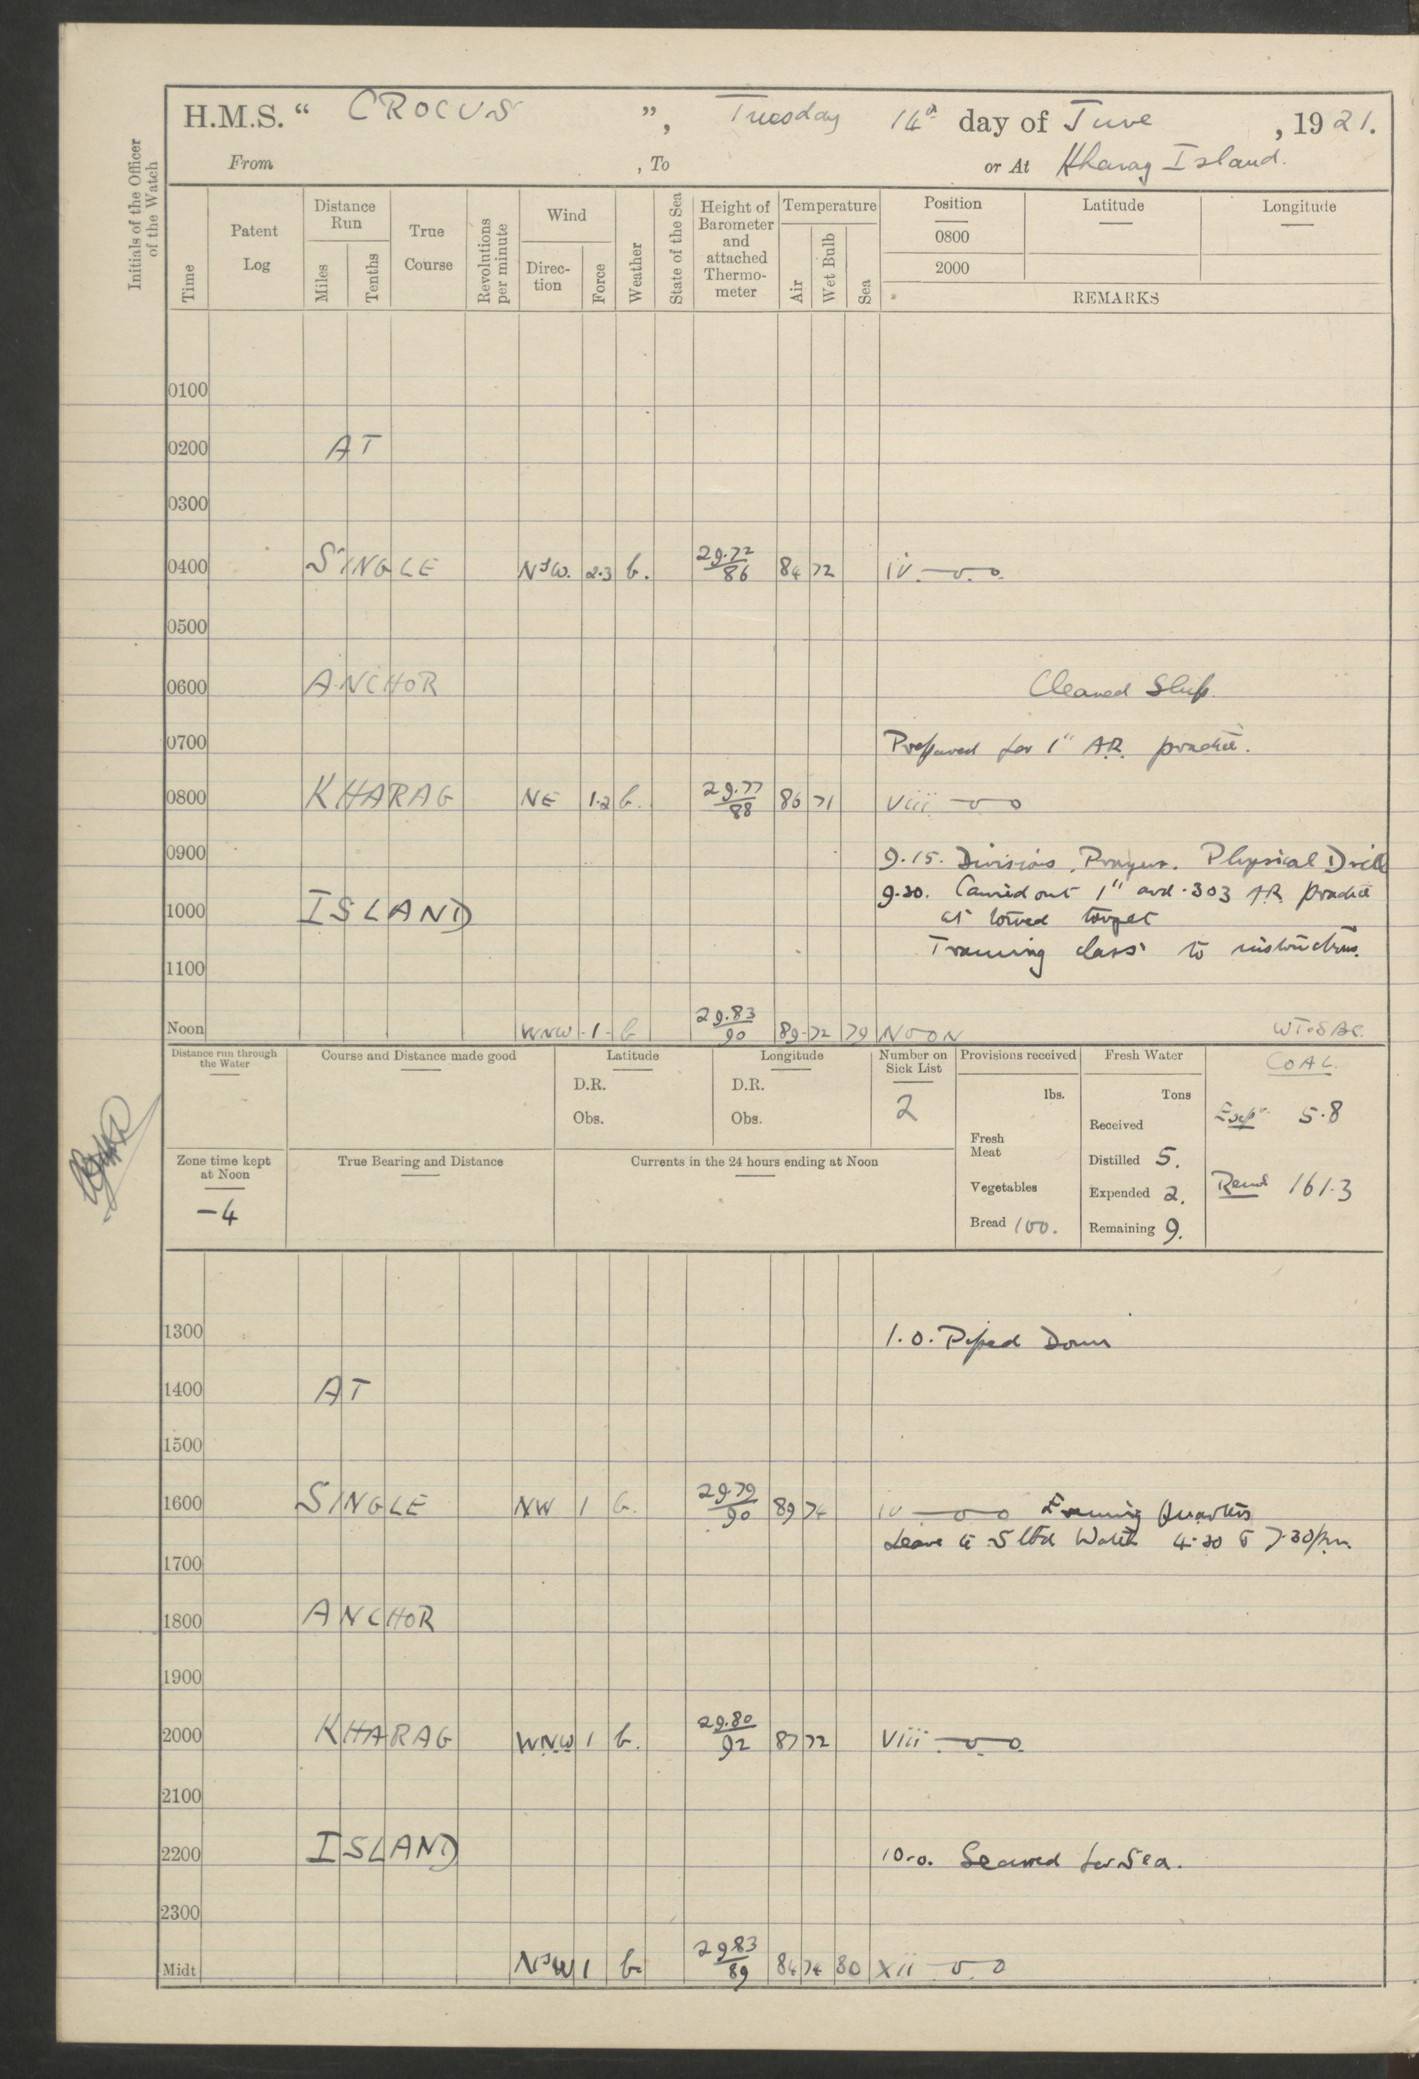 H.M.S. “ CROCUS ”, Tuesday 14th day of June, 1921.
From , To or At Kharag Island.
Initials of the Officer of the Watch
Time
Patent Log
Distance Run
Miles
Tenths
True Course
Revolutions per minute
Wind
Direc-tion
Force
Weather
State of the Sea
Height of Barometer and attached Thermo-meter
Temperature
Air
Wet Bulb
Sea
Position
0800
2000
Latitude
Longitude
REMARKS
0100
0200 AT
0300
0400 SINGLE N'W. 2.3 b. 29.72/86 84 72 iv — o. o.
0500
0600 ANCHOR Cleaned Ship.
0700 Prepared for 1" A.R. practice.
0800 KHARAG NE 1.2 b. 29.77/88 86 71 viii — o o
0900 9.15. Divisions. Prayers. Physical Drill
9.30. Carried out 1" and .303 A.R. practice
1000 ISLAND at towed target
Training class to instructions.
1100
Noon WNW 1 b 29.83/90 89 72 79 NOON
Distance run through the Water
Course and Distance made good
Latitude
D.R.
Obs.
Longitude
D.R.
Obs.
Number on Sick List
2
Provisions received
lbs.
Fresh Meat
Vegetables
Bread 100.
Fresh Water
Tons
Received
Distilled 5.
Expended 2.
Remaining 9.
COAL.
Exp 5.8
Remd 161.3
Zone time kept at Noon
-4
True Bearing and Distance
Currents in the 24 hours ending at Noon
1300 1.0. Piped Down
1400 AT
1500
1600 SINGLE NW 1 b. 29.79/90 89 74 iv — o o Evening Quarters
Leave to Stbd Watch 4.30 to 7.30 pm.
1700
1800 ANCHOR
1900
2000 KHARAG WNW 1 b. 29.80/92 87 72 viii — o. o.
2100
2200 ISLAND 10.0. Secured for Sea.
2300
Midt N'W 1 b. 29.83/89 84 74 80 xii — o. o